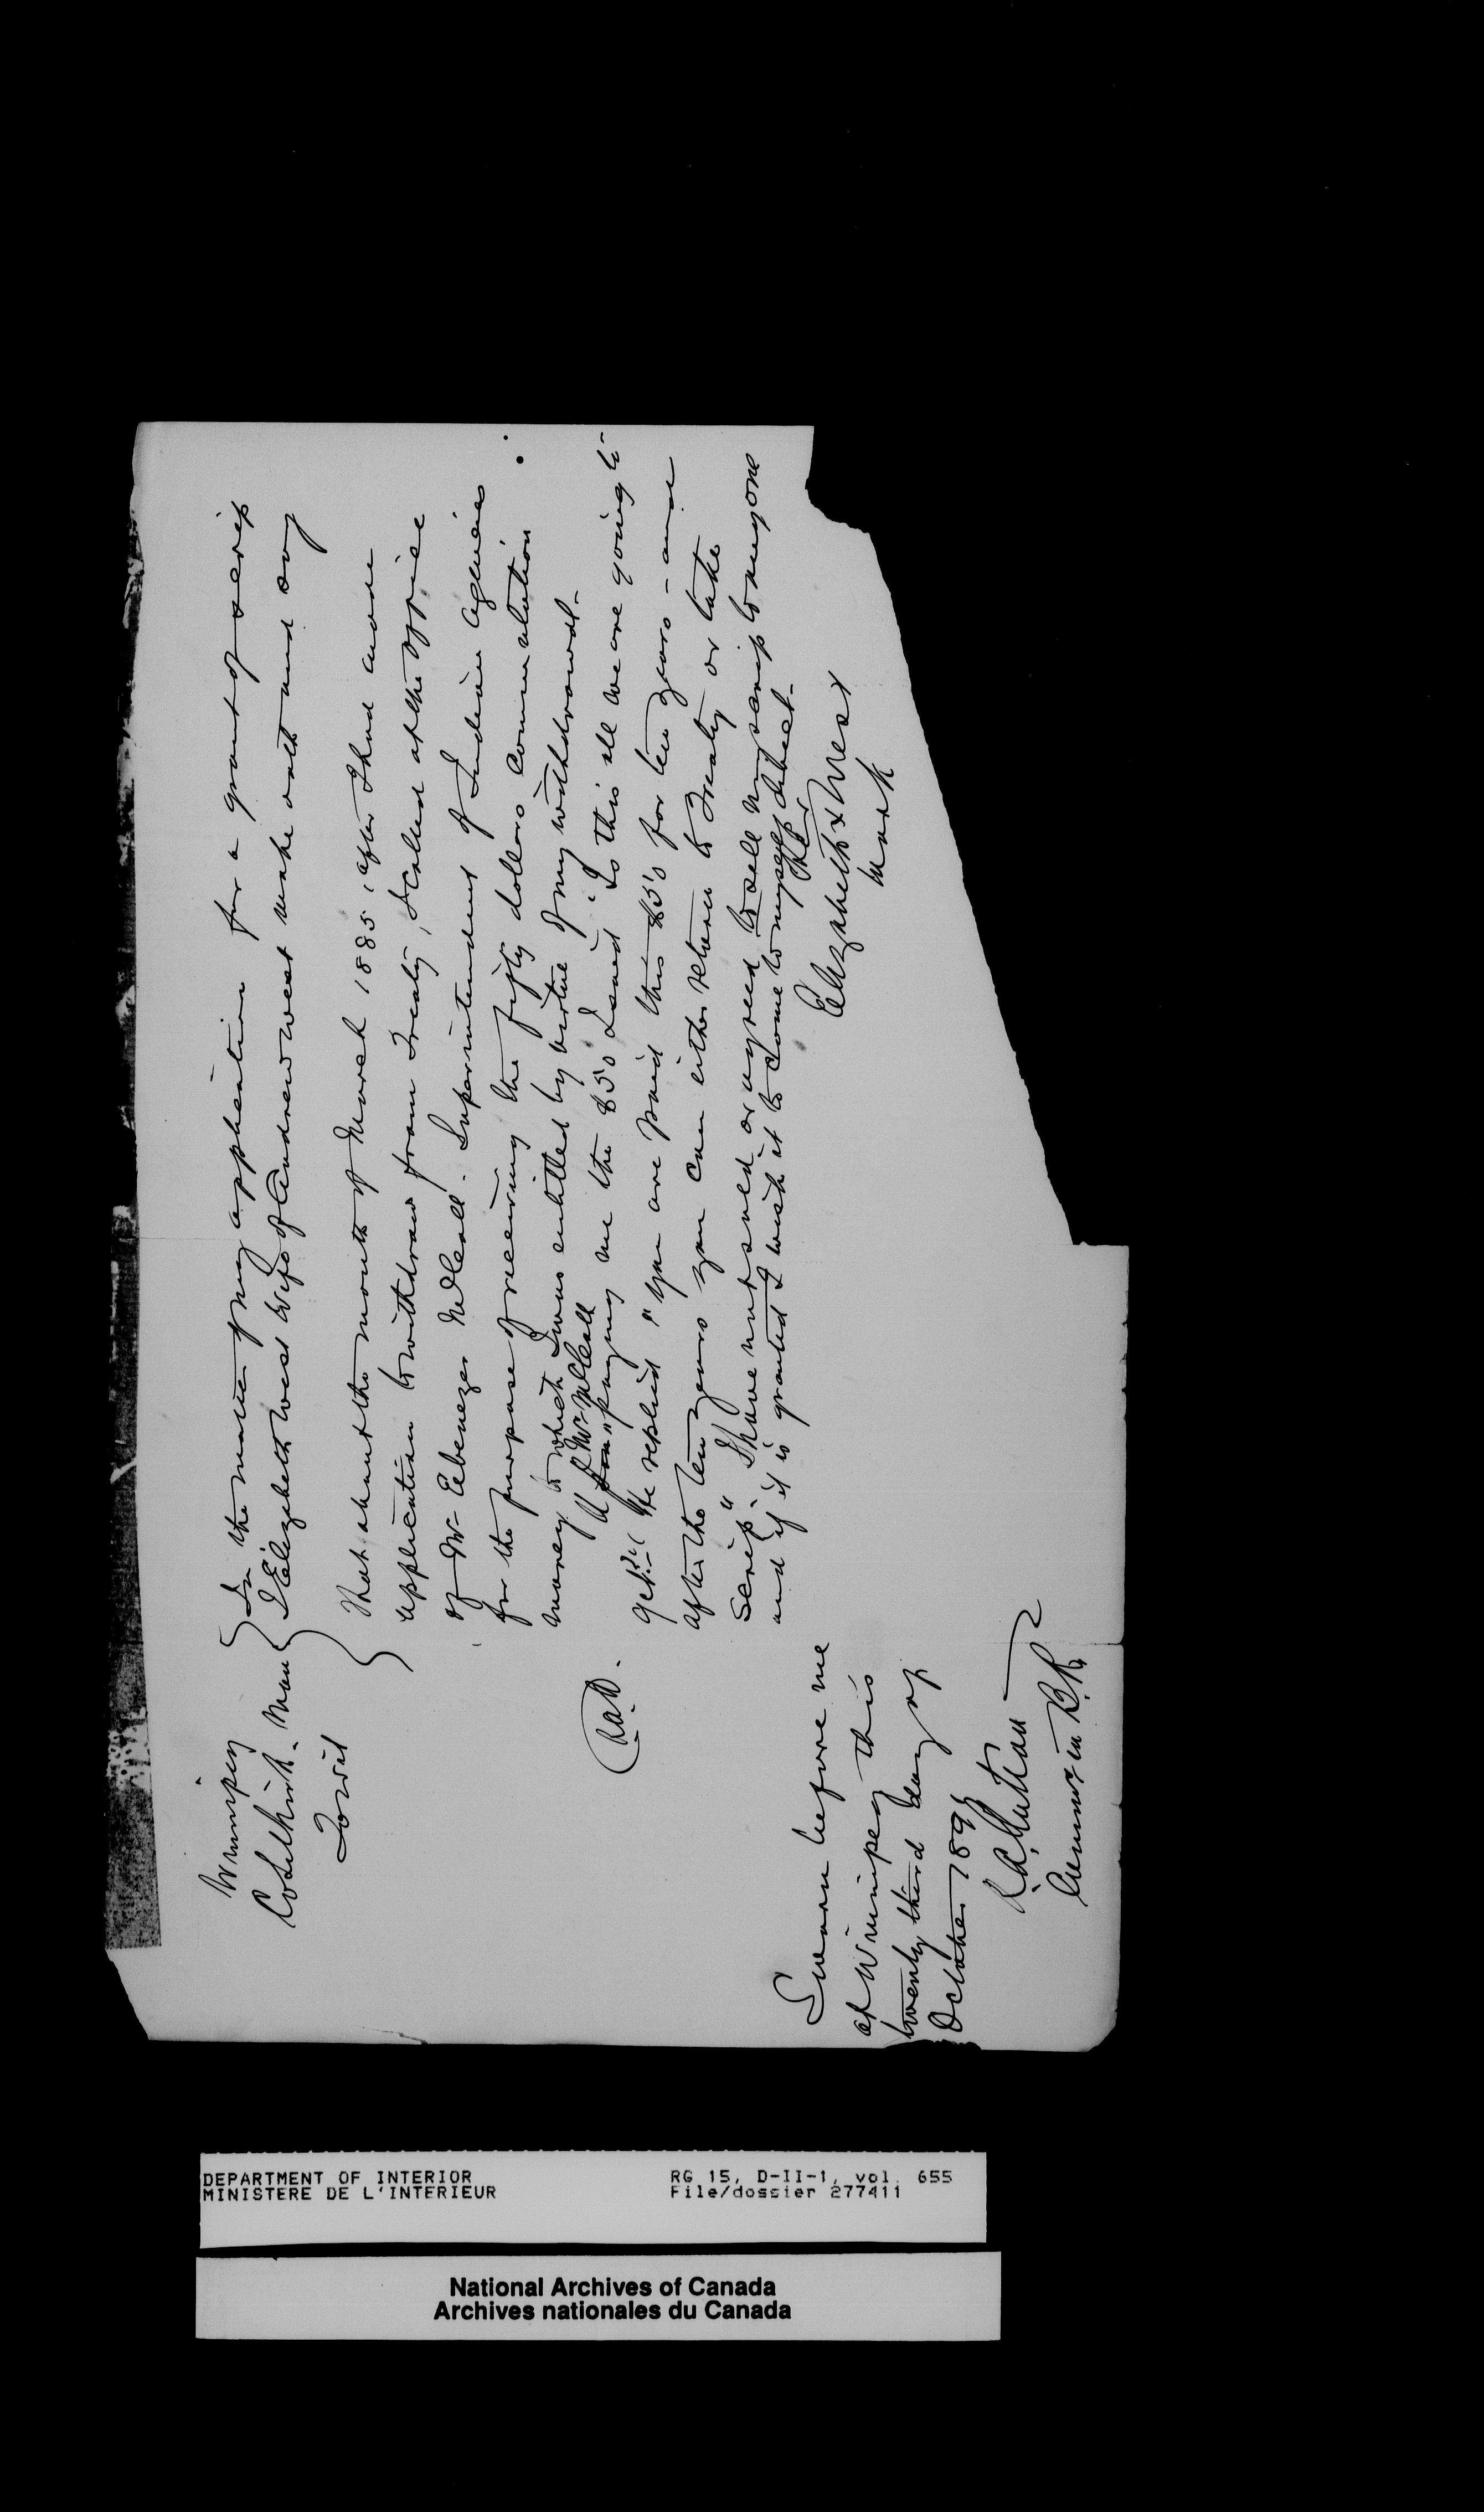 Winnipeg
Co Selkirk. Man
Towit
In the matter of my application for a grant of scrip
I Elizabeth West wife of Andrew West make oath and say
That about the month of March 1885, after I had made
application to withdraw from Treaty, I called at the office
of Mr Ebenezer McColl. Superintendent of Indian Agencies
for the purpose of receiving the fifty dollars commutation
money to which I was entitled by virtue of my withdrawal-
Mr McColl
Upon paying me the $50 I said "Is this all we are going to
get?" He replied "you are paid this $50 for ten years - and
after the ten years you can either return to Treaty or take
scrip." I have not sold or agreed to sell my scrip to anyone
and if it is granted I wish it to come to myself direct-
her
Elizabeth x West
mark
Sworn before me
at Winnipeg this
twenty third day of
October 189
Commr in B.R.
DEPARTMENT OF INTERIOR
MINISTERE DE L'INTERIEUR
RG 15, D-II-1, vol. 655
File/dossier 277411
National Archives of Canada
Archives nationales du Canada